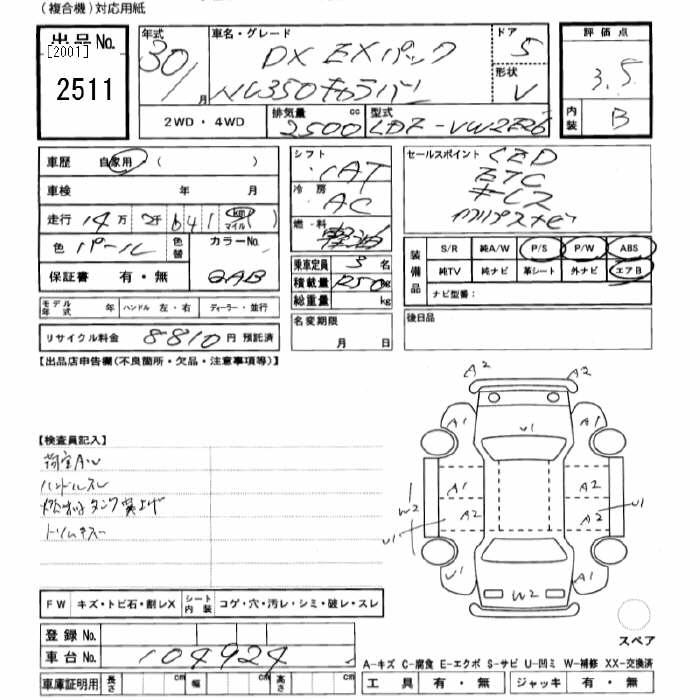 (複合機)対応用紙
出品No.
[2001]
2511
年式 30/1月
車名・グレード DX EXパック
NV350キャラバン
ドア 5
形状 V
評価点 3.5
内装 B
2WD・4WD
排気量 2500 cc
型式 LDF-VW2E26
車歴 自家用 ( )
車検 年 月
走行 14万2千641 (km マイル)
色 パール 色替 カラーNo. QAB
保証書 有・無
シフト IAT
冷房 AC
燃料 軽油
乗車定員 3名
積載量 1250kg
総重量 kg
セールスポイント LED
ETC
キーレス
S/R 純A/W P/S P/W ABS
装備品
純TV 純ナビ 革シート 外ナビ エアB
ナビ型番:
モデル年式 年 ハンドル 左・右 ディーラー・並行
リサイクル料金 8810円 預託済
名変期限 月 日
後日品
【出品店申告欄(不良箇所・欠品・注意事項等)】
【検査員記入】
荷室AW
ハンドルスレ
燃料タンク
トリムキズ
A2 A2
A1 U1 A1
A1 A2
W2 A2 A2 U1
U1
U1 W2 A1
スペア
FW キズ・トビ石・割レX シート内装 コゲ・穴・汚レ・シミ・破レ・スレ
登録No.
車台No. 104924
A-キズ C-腐食 E-エクボ S-サビ U-凹ミ W-補修 XX-交換済
車庫証明用 長さ cm 幅 cm 高さ cm
工具 有・無 ジャッキ 有・無